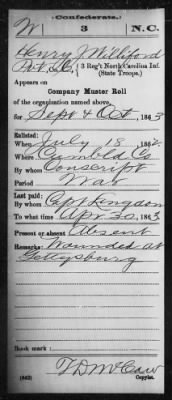 (Confederate.)
W 3 N.C.
Henry J Williford
Pvt, Co. C, 3 Reg't North Carolina Inf.
(State Troops.)
Appears on
Company Muster Roll
of the organization named above,
for Sept & Oct, 1863
Enlisted:
When July 18, 1862
Where Cumbld Co
By whom Conscript
Period War
Last paid:
By whom Capt Kingdon
To what time Apr 30, 1863
Present or absent Absent
Remarks: Wounded at
Gettysburg
Book mark:
(642) Copyist.